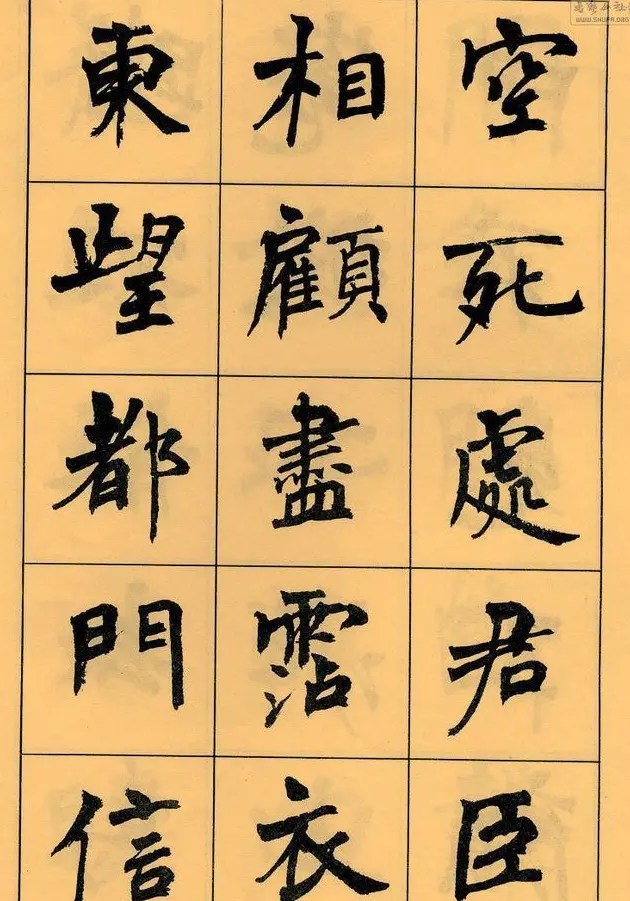 空死處君臣
相顧盡霑衣
東望都門信
WWW.SHUFA.ORG